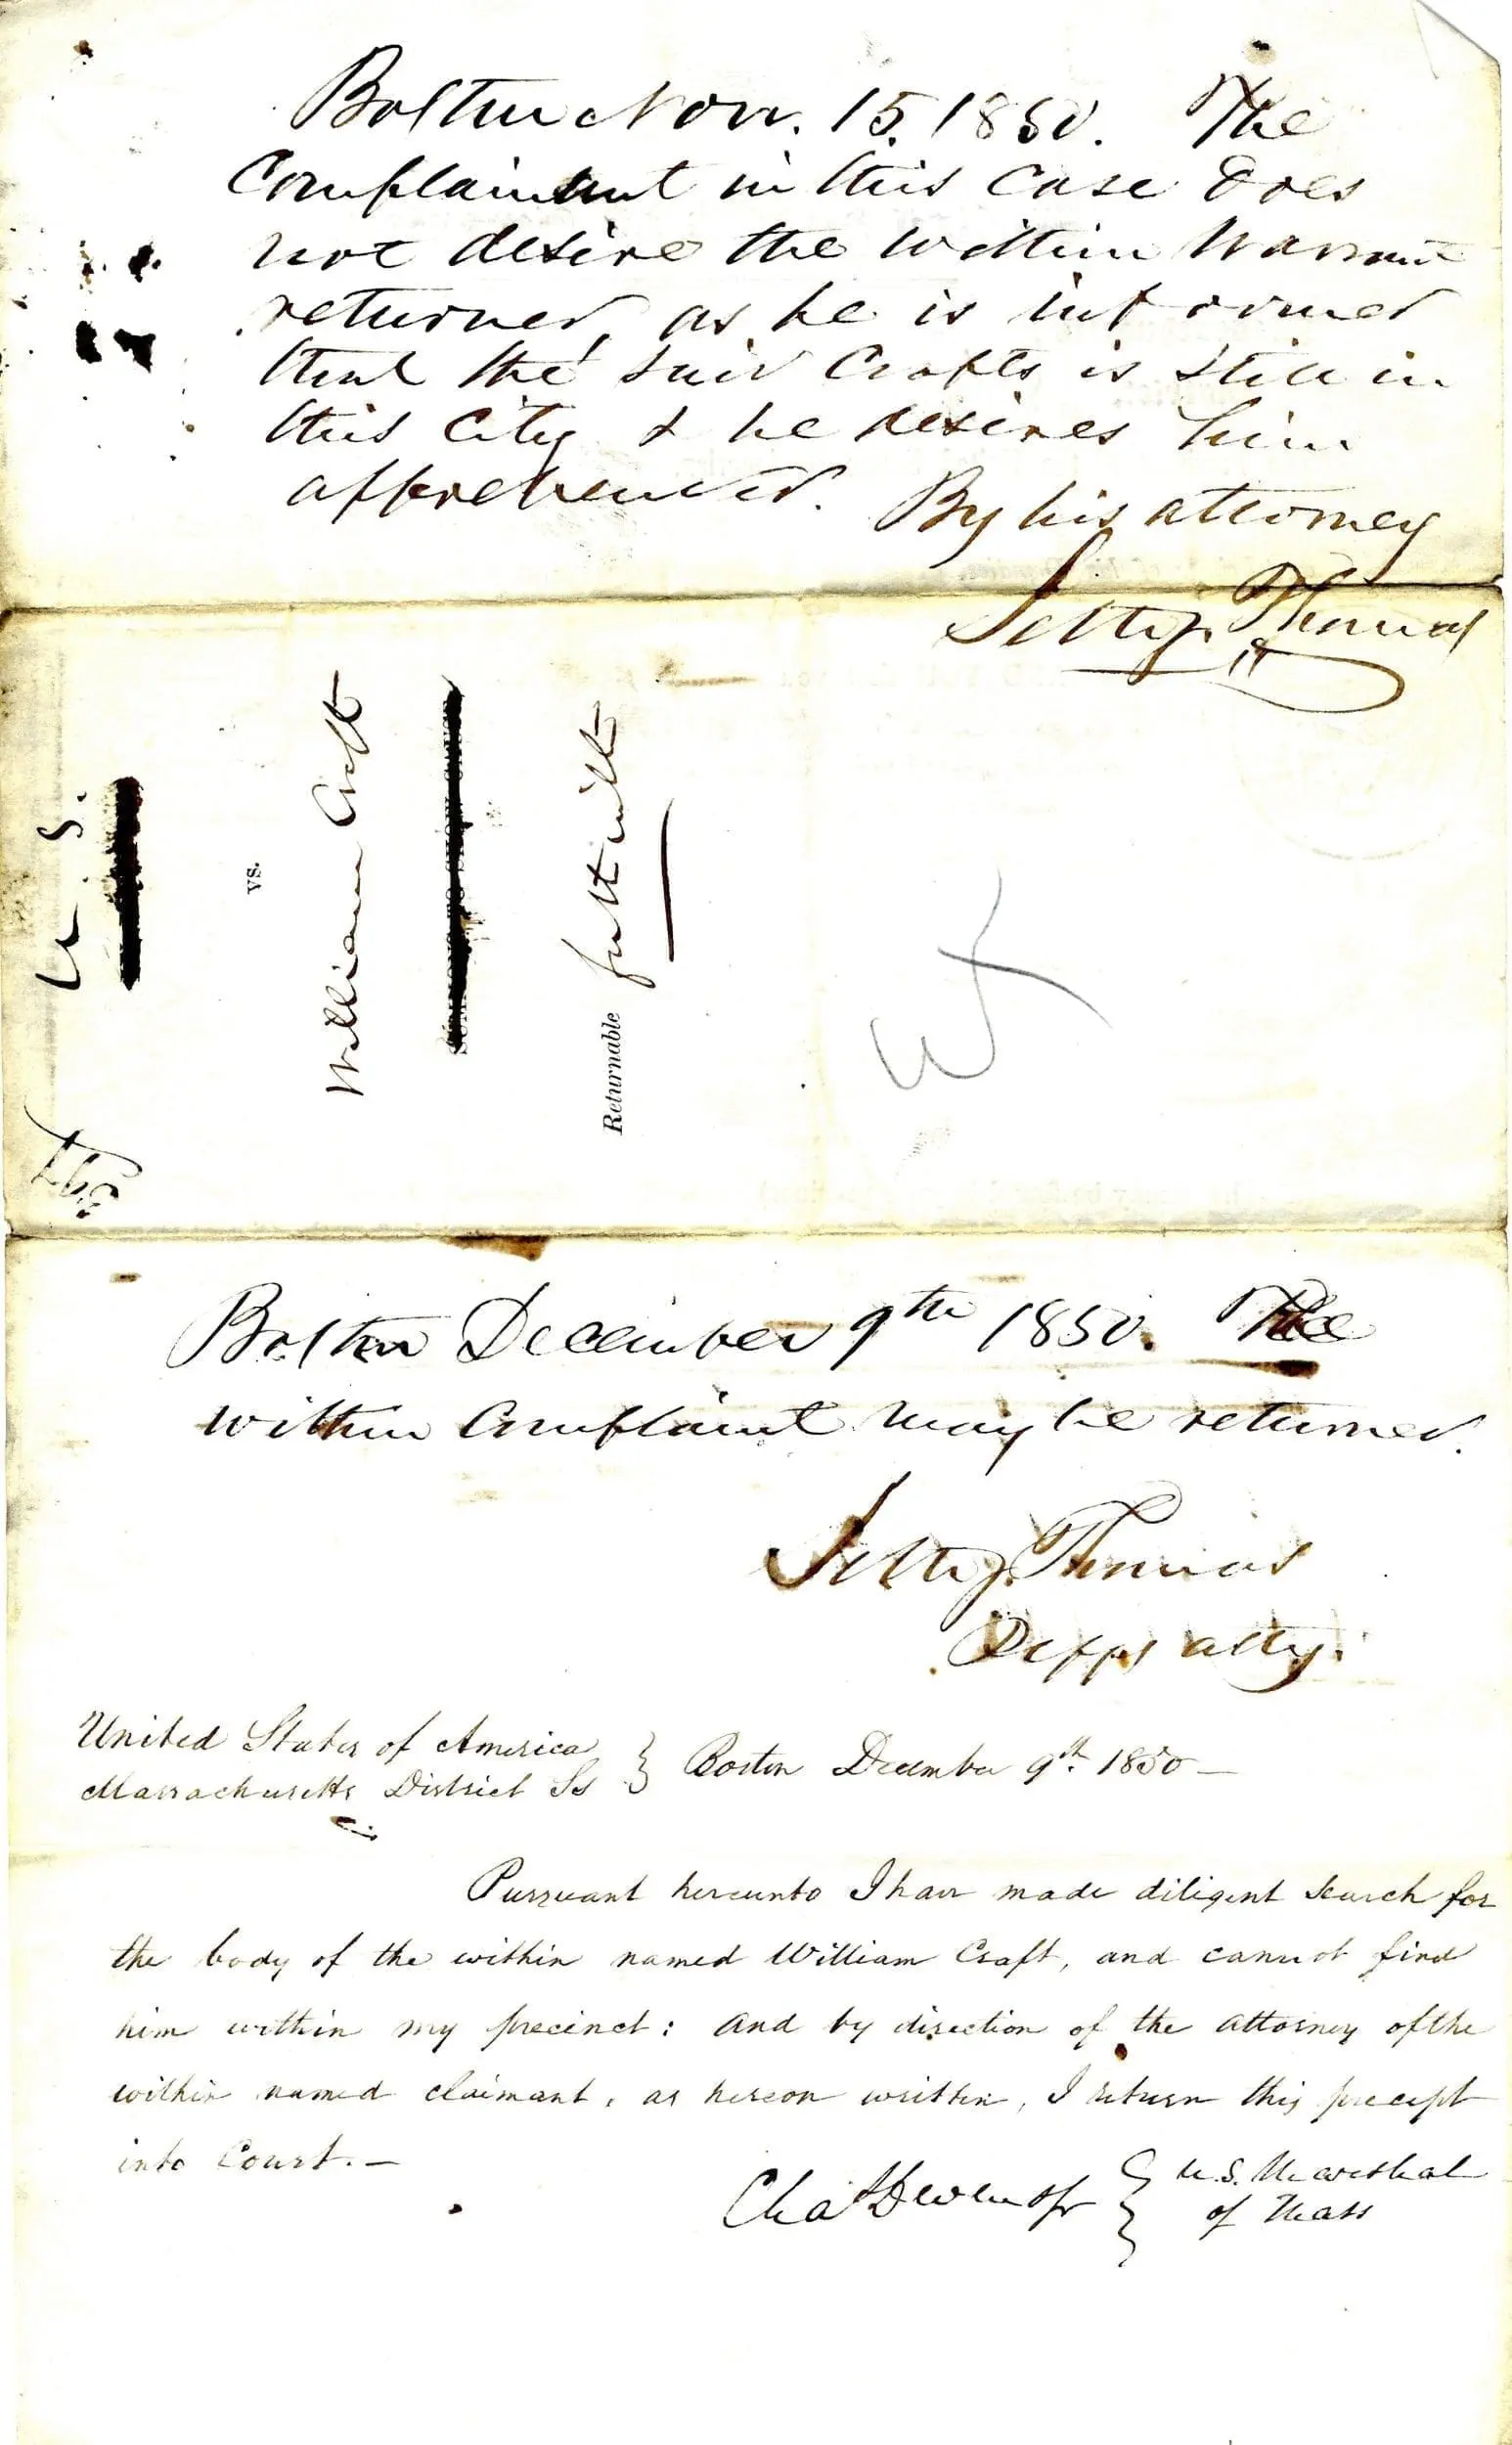 Boston Nov. 15. 1850. The
Complainant in this case does
not desire the within Warrant
returned, as he is informed
that the said Crafts is still in
this City & he desires him
apprehended. By his attorney
Seth J. Thomas
U. S.
vs.
William Craft
Returnable forthwith
Boston December 9th 1850. The
within Complaint may be returned.
Seth J. Thomas
atty.
United States of America
Massachusetts District Ss } Boston December 9th. 1850 —
Pursuant hereunto I have made diligent search for
the body of the within named William Craft, and cannot find
him within my precinct: and by direction of the attorney of the
within named claimant, as hereon written, I return this precept
into Court. —
Chas Devens Jr } U.S. Marshal
of Mass